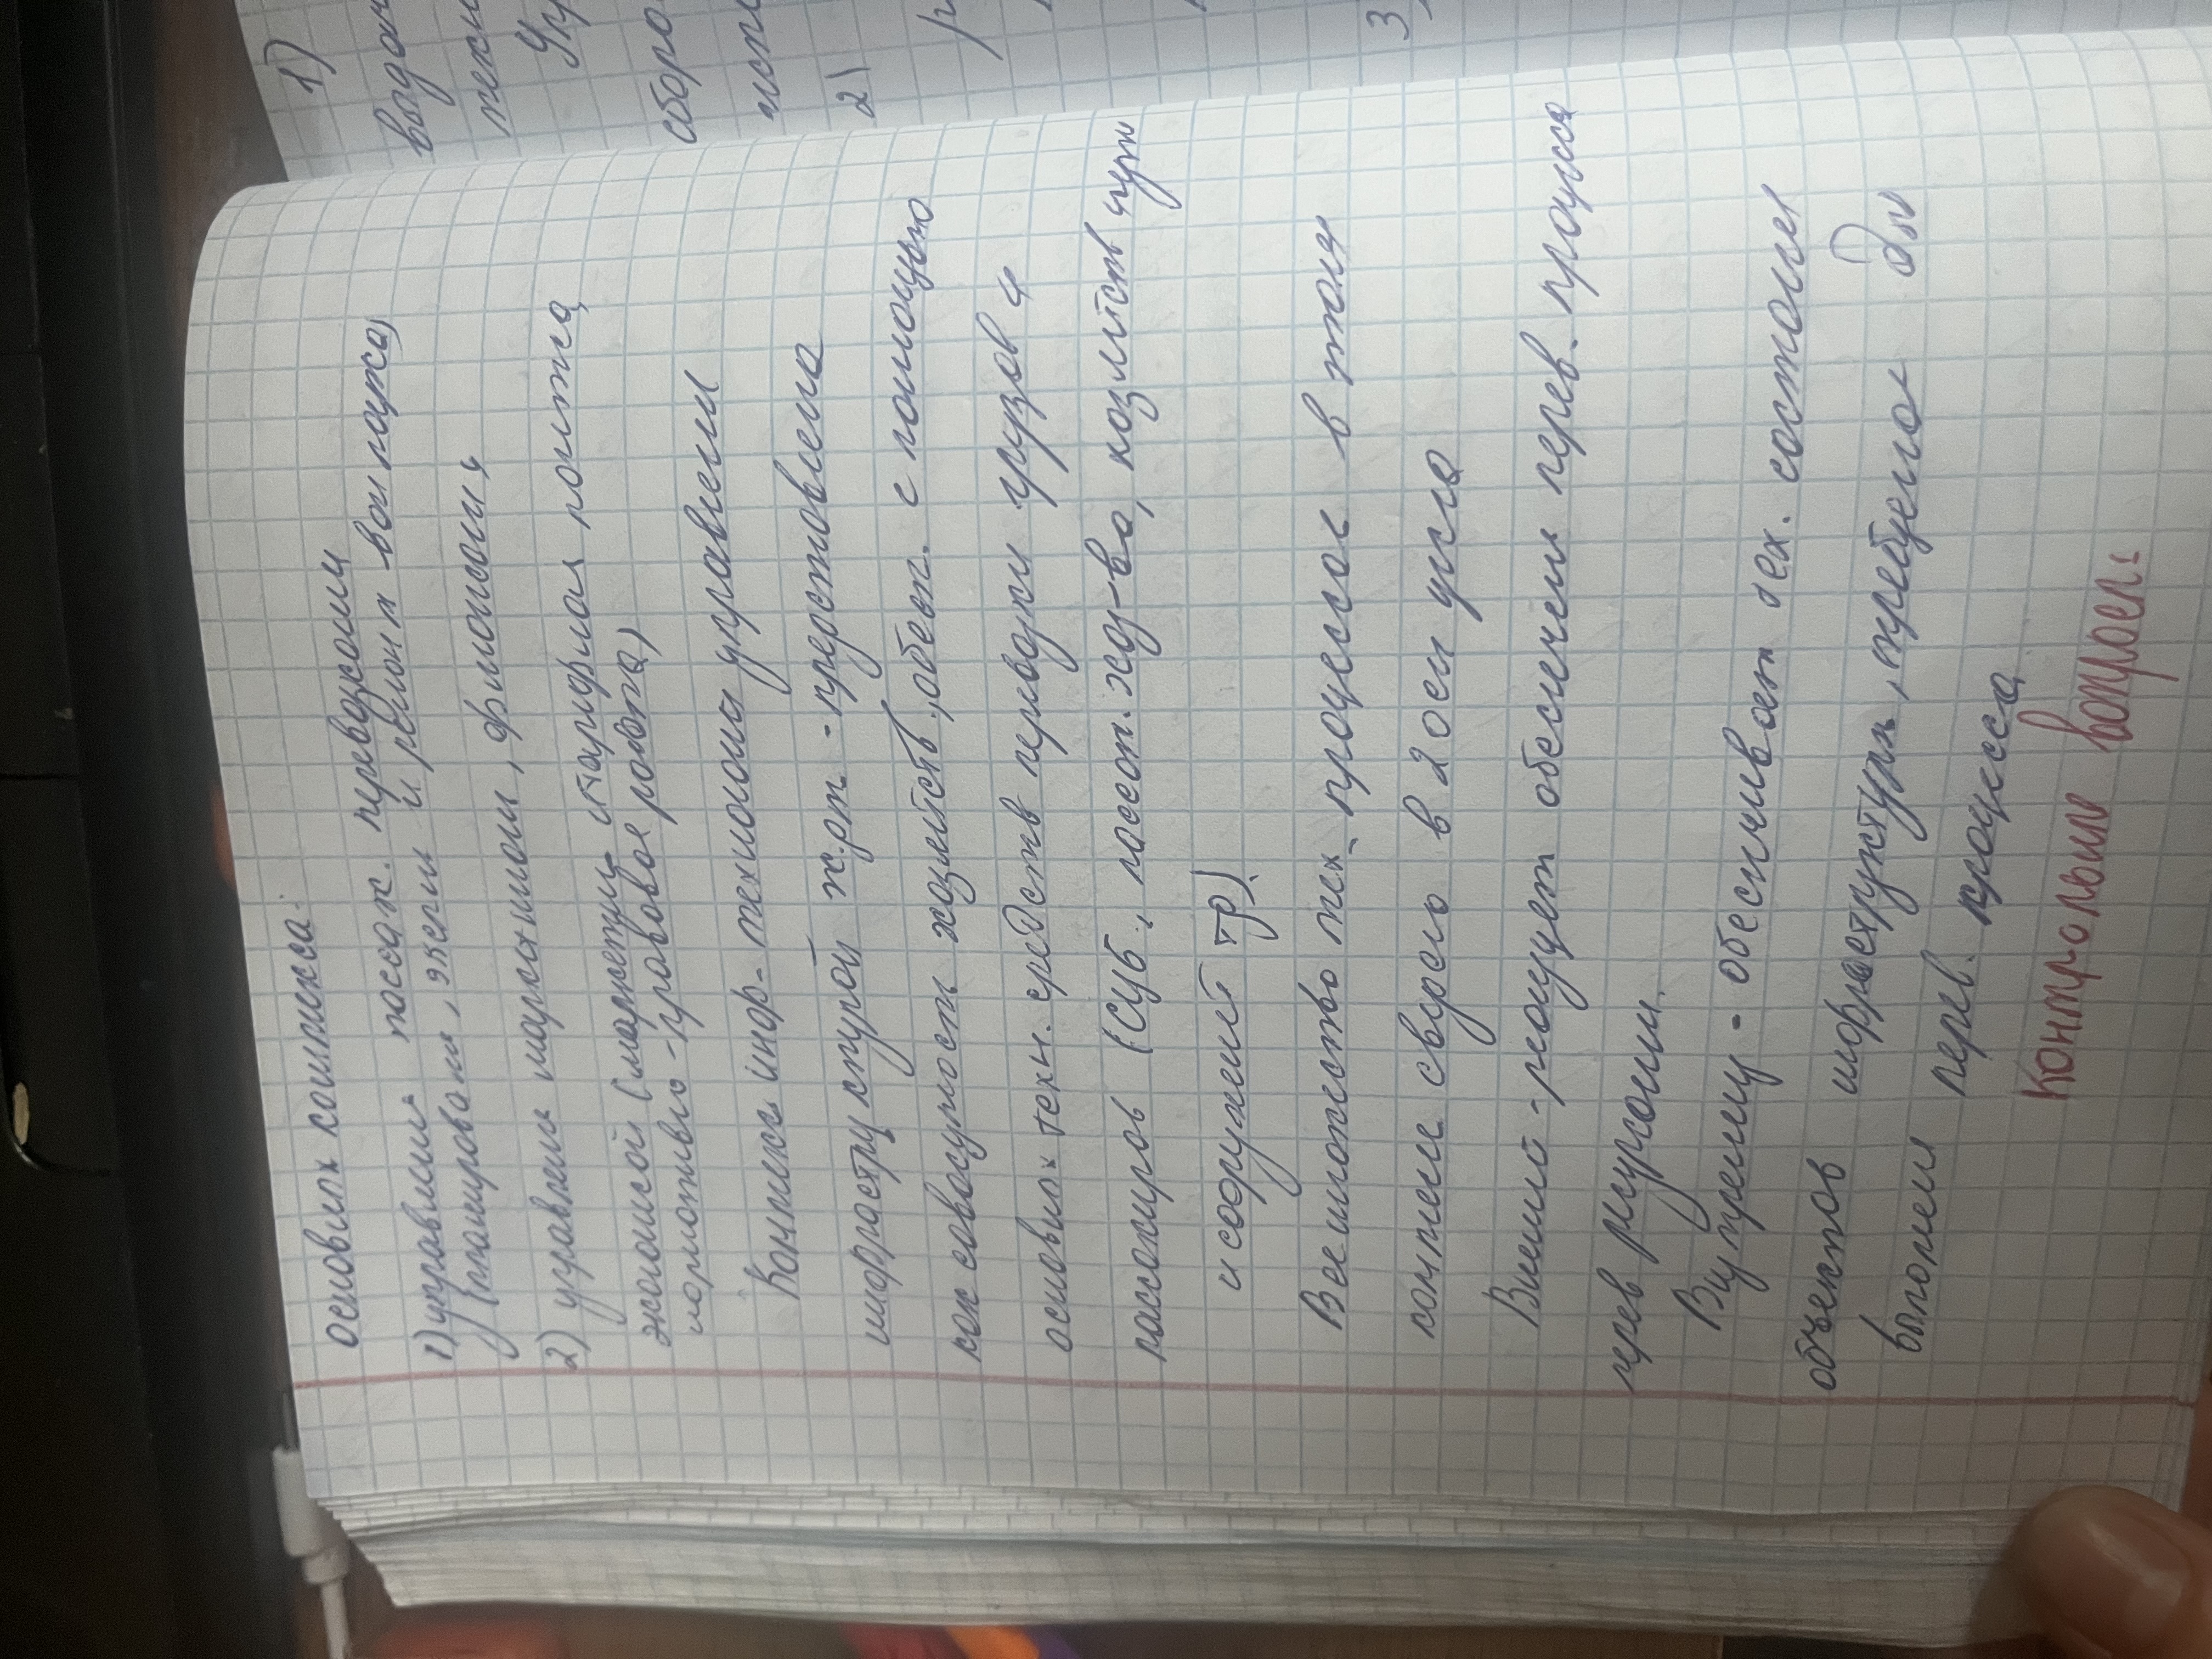 основных комплекса:
1) управления пассаж. перевозками
(планирования, экспл и ремонт вагонпарка)
2) управления маркетингом, финансами и
экономикой (маркетинг, тарифная политика
нормативно-правовая работа)
Комплекс инфор. технологий управлени
инфраструктурой ж.рт - представлена
как совокупность хозяйств, обесп. с помощью
основных техн. средств перевозки грузов и
пассажиров (СЦБ, пассаж. хоз-ва, хозяйств пути
и сооружений тр).
Все множество тех. процессов в таком
комплексе сведено в 2 осн
Внешний - реализует обеспечен перев. процесса
перев ресурсами.
Внутренну - обеспечивает тех. состояние
объектов инфраструктуры, требуемое для
выполнени перев. процесса
Контрольные вопросы:
1)
2)
3